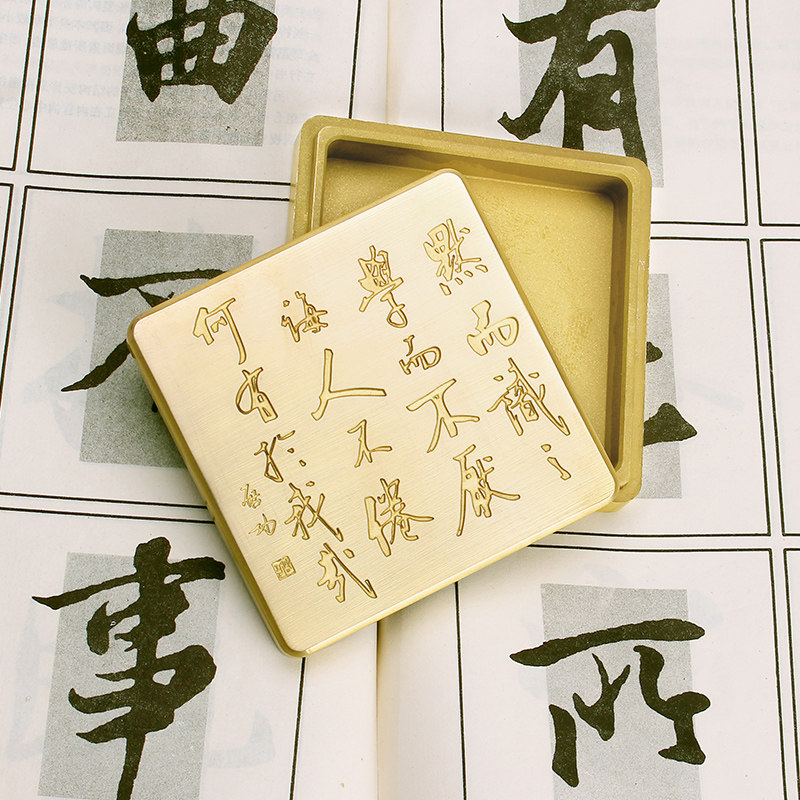 默而識之
學而不厭
誨人不倦
何有於我哉
启功
有
所
曲
不
事